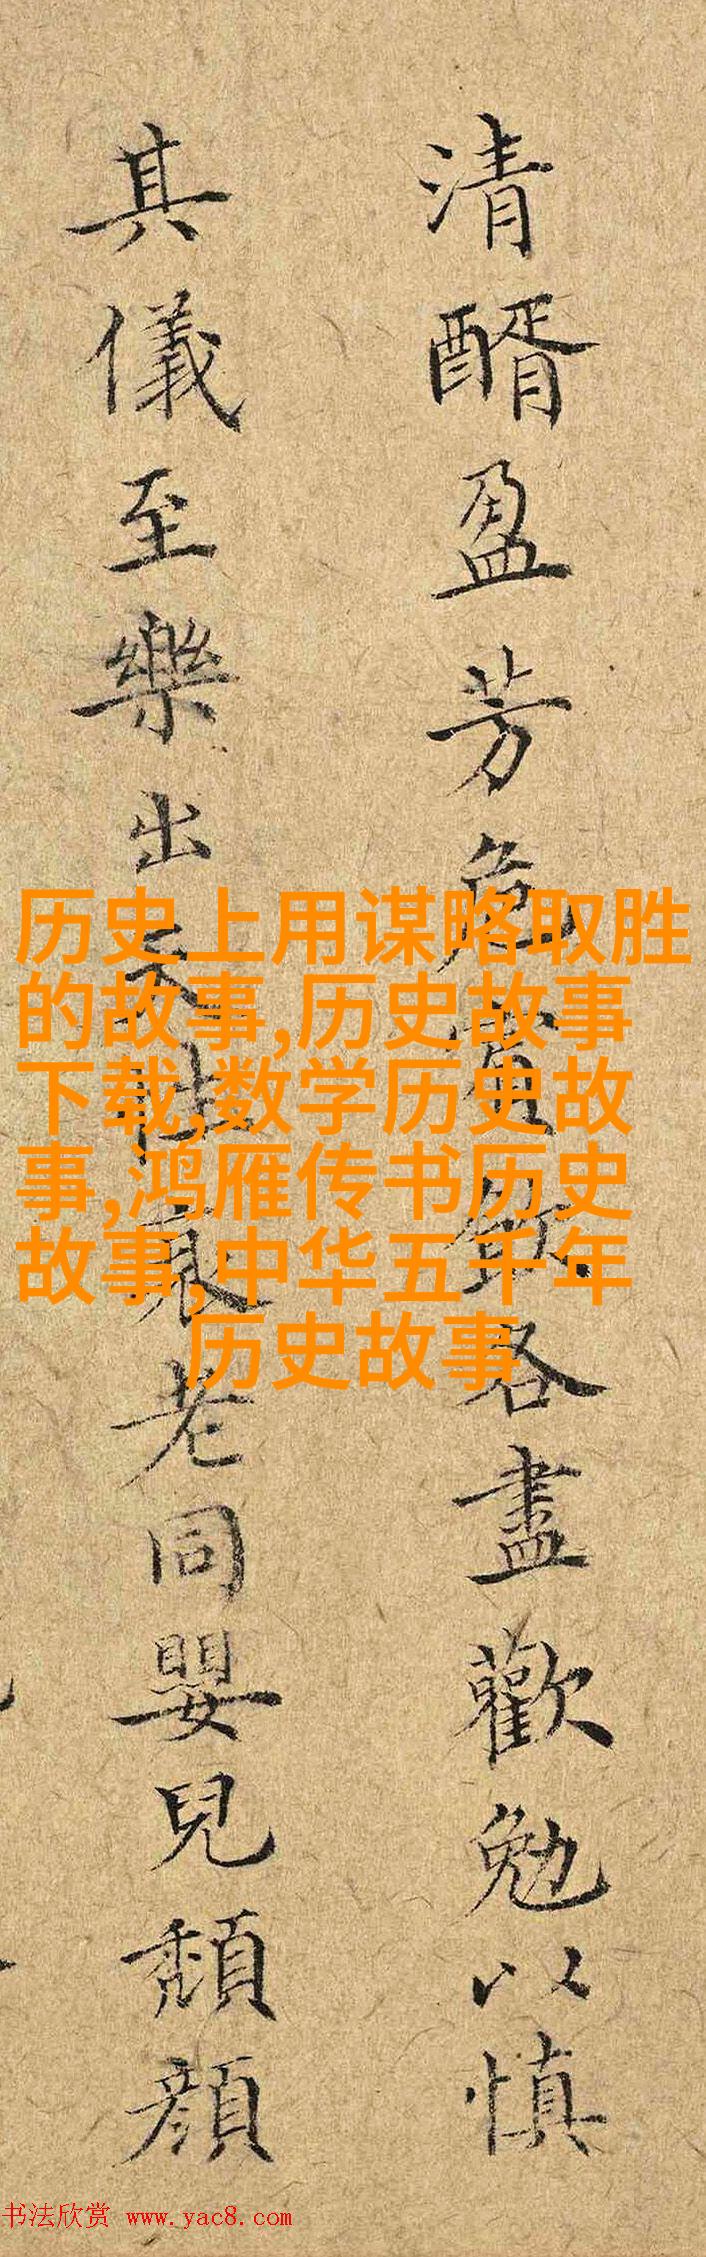 清醑盈芳各盡歡勉以慎
其儀至樂出天性衰老同嬰兒頽顏
历史上用谋略取胜
的故事,历史故事
下载,数学历史故
事,鸿雁传书历史
故事,中华五千年
历史故事
书法欣赏 www.yac8.com